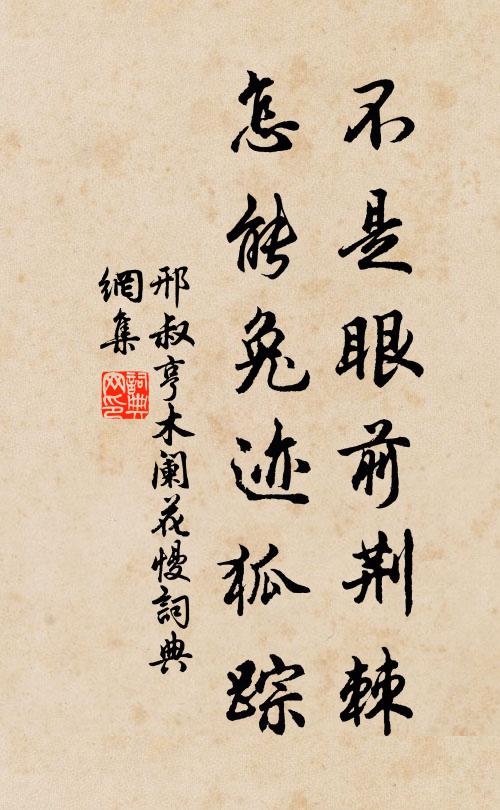 不是眼前荆棘
怎能兔迹狐踪
邢叔亨木阑花慢詞典
網集
詞典网印